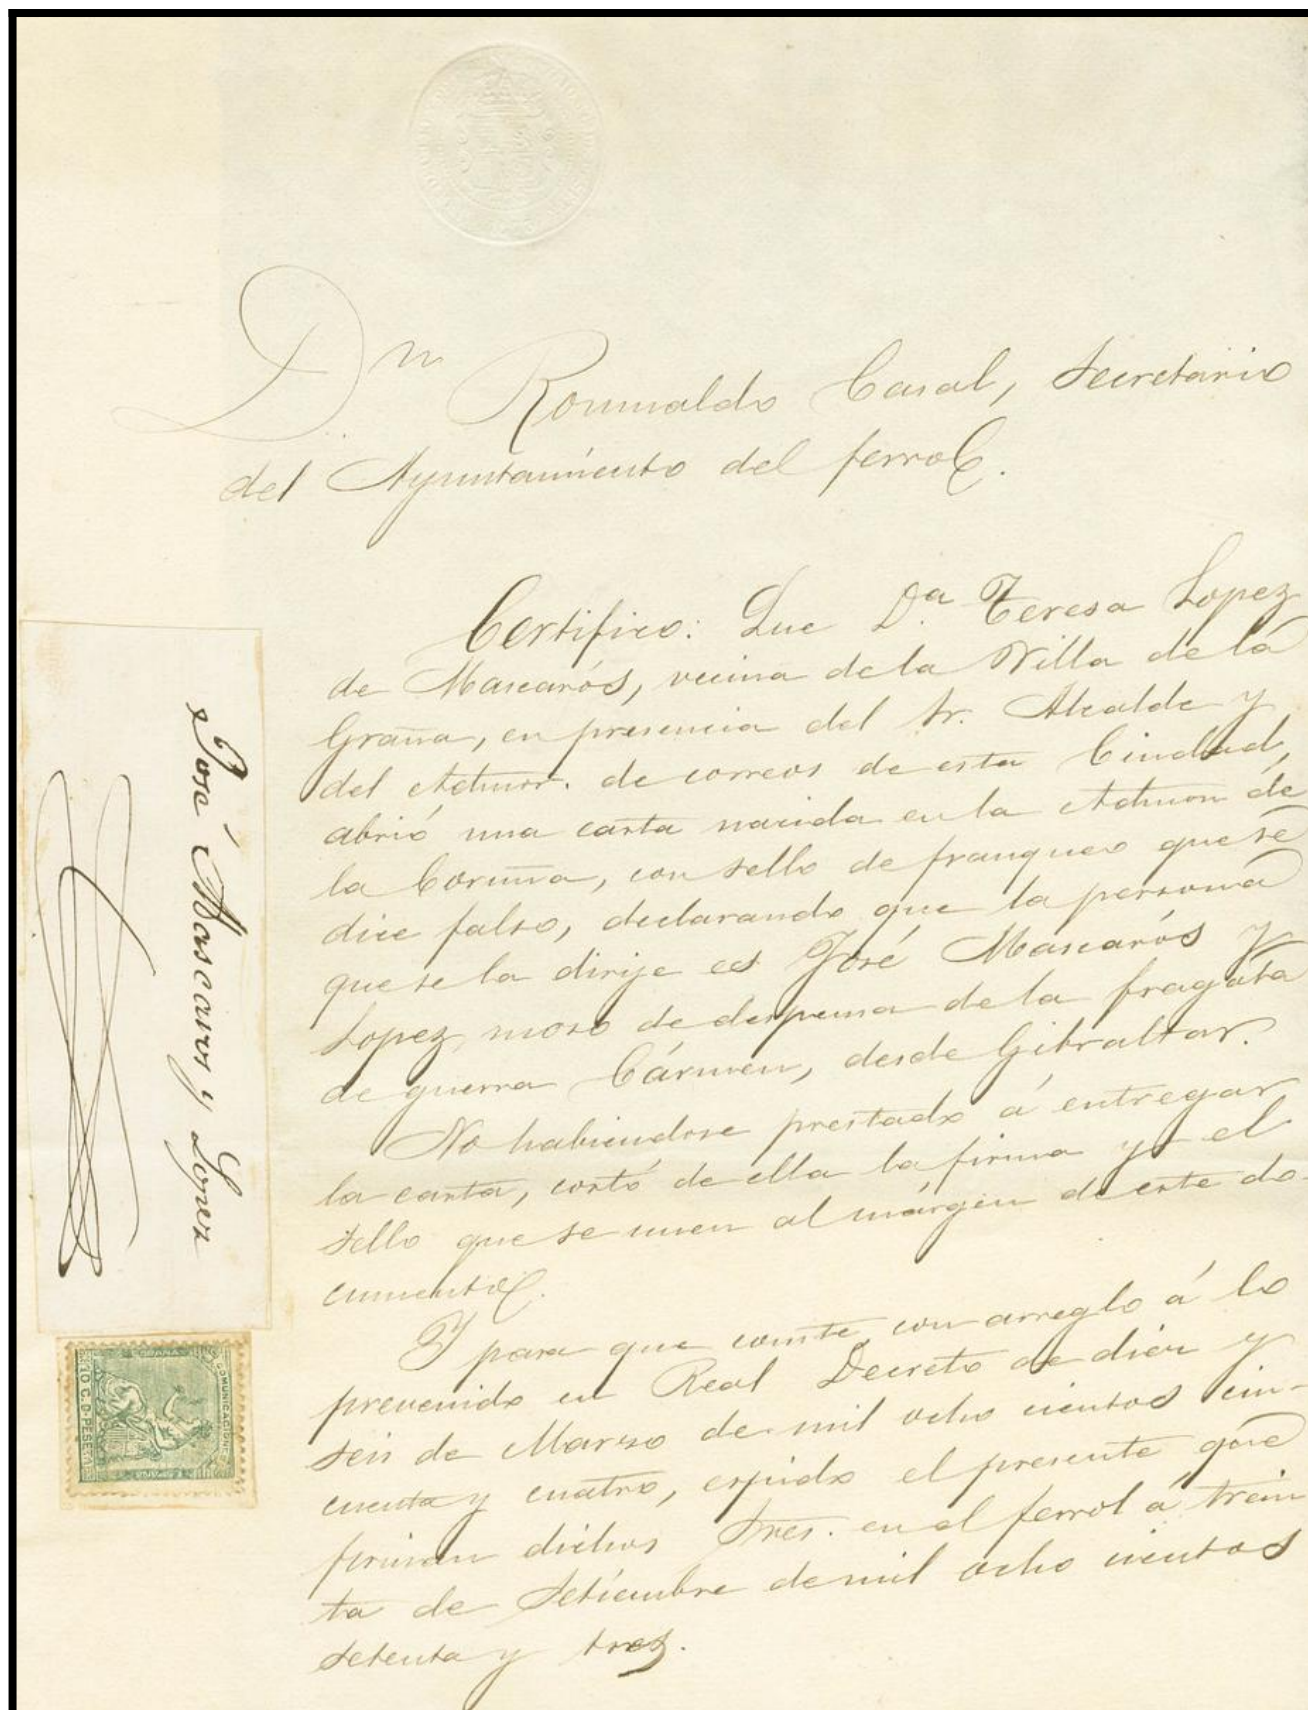 Dn Romualdo Casal, Secretario
del Ayuntamiento del ferrol.
Certifico: Que D.a Teresa Lopez
de Mascarós, vecina de la Villa de la
Graña, en presencia del Sr. Alcalde y
del Admor. de correos de esta Ciudad,
abrió una carta nacida en la Admon de
la Coruña, con sello de franqueo que se
dice falso, declarando que la persona
que se la dirije es José Mascarós y
Lopez, moso de despensa de la fragata
de guerra Cármen, desde Gibraltar.
No habiendose prestado á entregar
la carta, cortó de ella la firma y el
sello que se unen al márgen de este do-
cumento.
Y para que conste, con arreglo á lo
prevenido en Real Decreto de diez y
seis de Marzo de mil ocho cientos cin-
cuenta y cuatro, espido el presente que
firman dichos Sres. en el ferrol á trein
ta de Setiembre de mil ocho cientos
setenta y tres.
José Mascaros y Lopez
COMUNICACIONES
ESPAÑA
10 C. D. PESETA